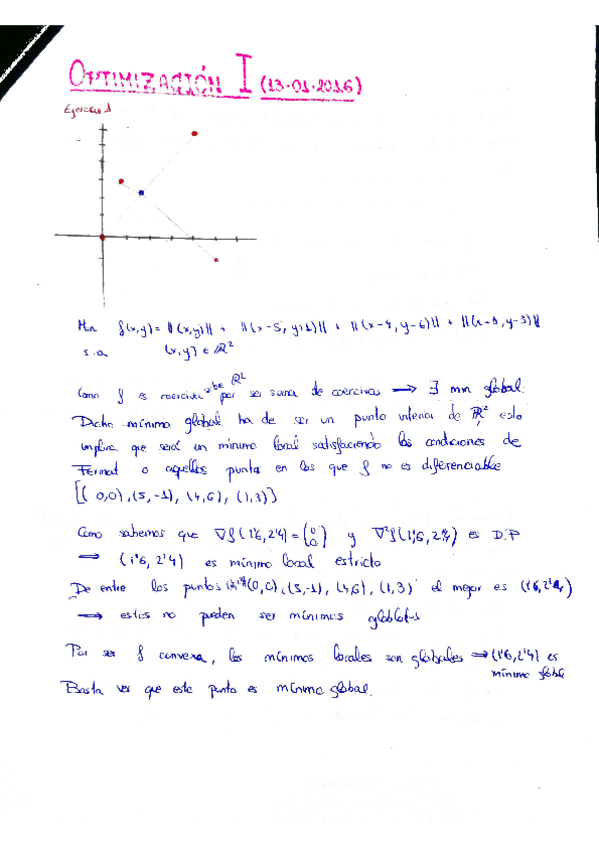 OPTIMIZACIÓN I (13-01-2016)
Ejercicio 1
Min f(x,y) = ||(x,y)|| + ||(x-5, y+1)|| + ||(x-4, y-6)|| + ||(x-1, y-3)||
s.a. (x,y) ∈ ℝ²
Como f es coerciva sobre ℝ² por ser suma de coercivas ⟶ ∃ min global.
Dicho mínimo global ha de ser un punto interior de ℝ², esto
implica que será un mínimo local satisfaciendo las condiciones de
Fermat o aquellos puntos en los que f no es diferenciable
[(0,0), (5,-1), (4,6), (1,3)]
Como sabemos que ∇f(1'6, 2'4) = (0 0) y ∇²f(1'6, 2'4) es D.P
⟹ (1'6, 2'4) es mínimo local estricto
De entre los puntos (0,0), (5,-1), (4,6), (1,3) el mejor es (1'6, 2'4)
⟶ estos no pueden ser mínimos globales
Por ser f convexa, los mínimos locales son globales ⟹ (1'6, 2'4) es
mínimo global
Basta ver que este punto es mínimo global.